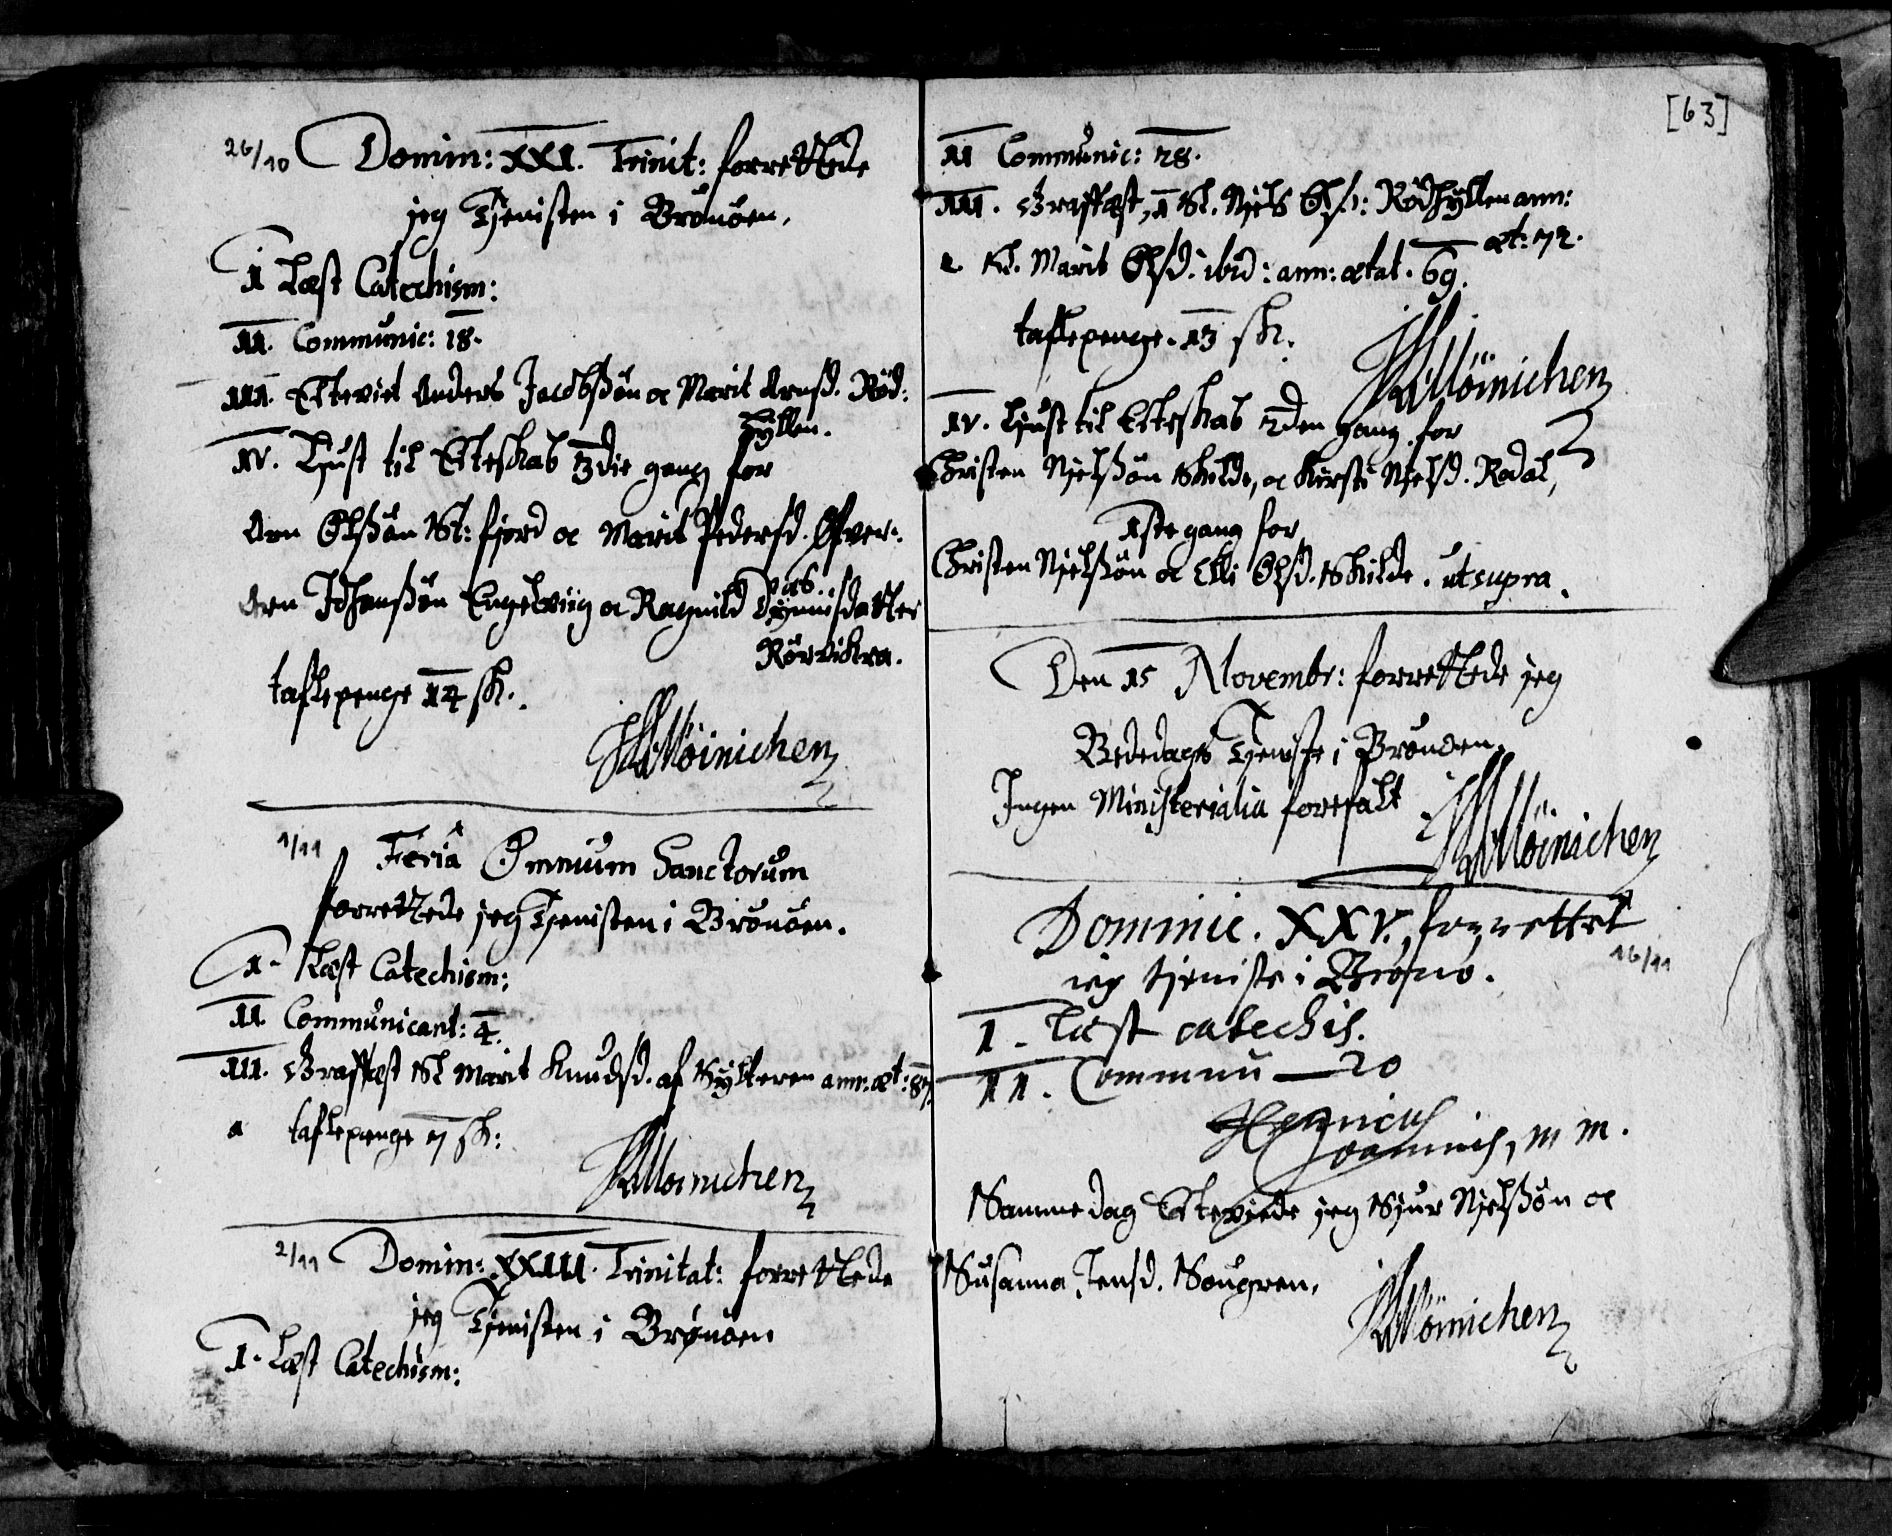 26/10 Domin: XXI. Trinit: forrettede
jeg Tjenisten i Brønøen.
I Læst Catechism:
II. Communic: 18.
III. Ecteviet Anders Jacobsøn oc Marit Arnsd. Rød:
hyllen.
IV. Liust til Ecteskab 3die gang for
Arn Olsøn St: fjord oc Marit Pedersd. Øfver:
Arn Johansøn Engelwiig oc Ragnild Dynnisdatter
Rørvikra.
taflepenge 14 sk.
Möinichen
1/11 Feriâ Omnium Sanctorum
forrettede jeg Tjenisten i Brønøen.
I. Læst Catechism:
II Communicant: 4.
III. Graffæst Sl Marit Knudsd. af Sylteren ann: æt: 87.
taflepenge 7 sk:
Möinichen
2/11 Domin: XXIII. Trinitat: forrettede
jeg Tjenisten i Brønøen
I. Læst Catechism:
[63]
II Communic: 28.
III. Graffæst, 1 Sl. Njels Ols: Rødhyllen ann:
æt: 72.
2. Sl. Marit Olsd. ibid: ann: ætat. 69.
taflepenge. 13 sk.
Möinichen
IV. Ljust til Ecteskab 2den gang for
Christen Njelsøn Skilde, oc Kirsti Njelsd. Rødal,
1ste gang for
Christen Njelsøn oc Elli Olsd. Skilde. ut supra.
Den 15 Novembr: forrettede jeg
Bededags Tjeniste i Brønøen.
Ingen Ministerialia forefalt
Möinichen
Dominic. XXV. forrettet
ieg tjeniste i Brønø. 16/11
I. Læst catechis.
II. Commun — 20
Henricus
m m.
Samme dag Ecteviede jeg Sjur Njelsøn oc
Susanna Jensd. Sougren.
Möinichen